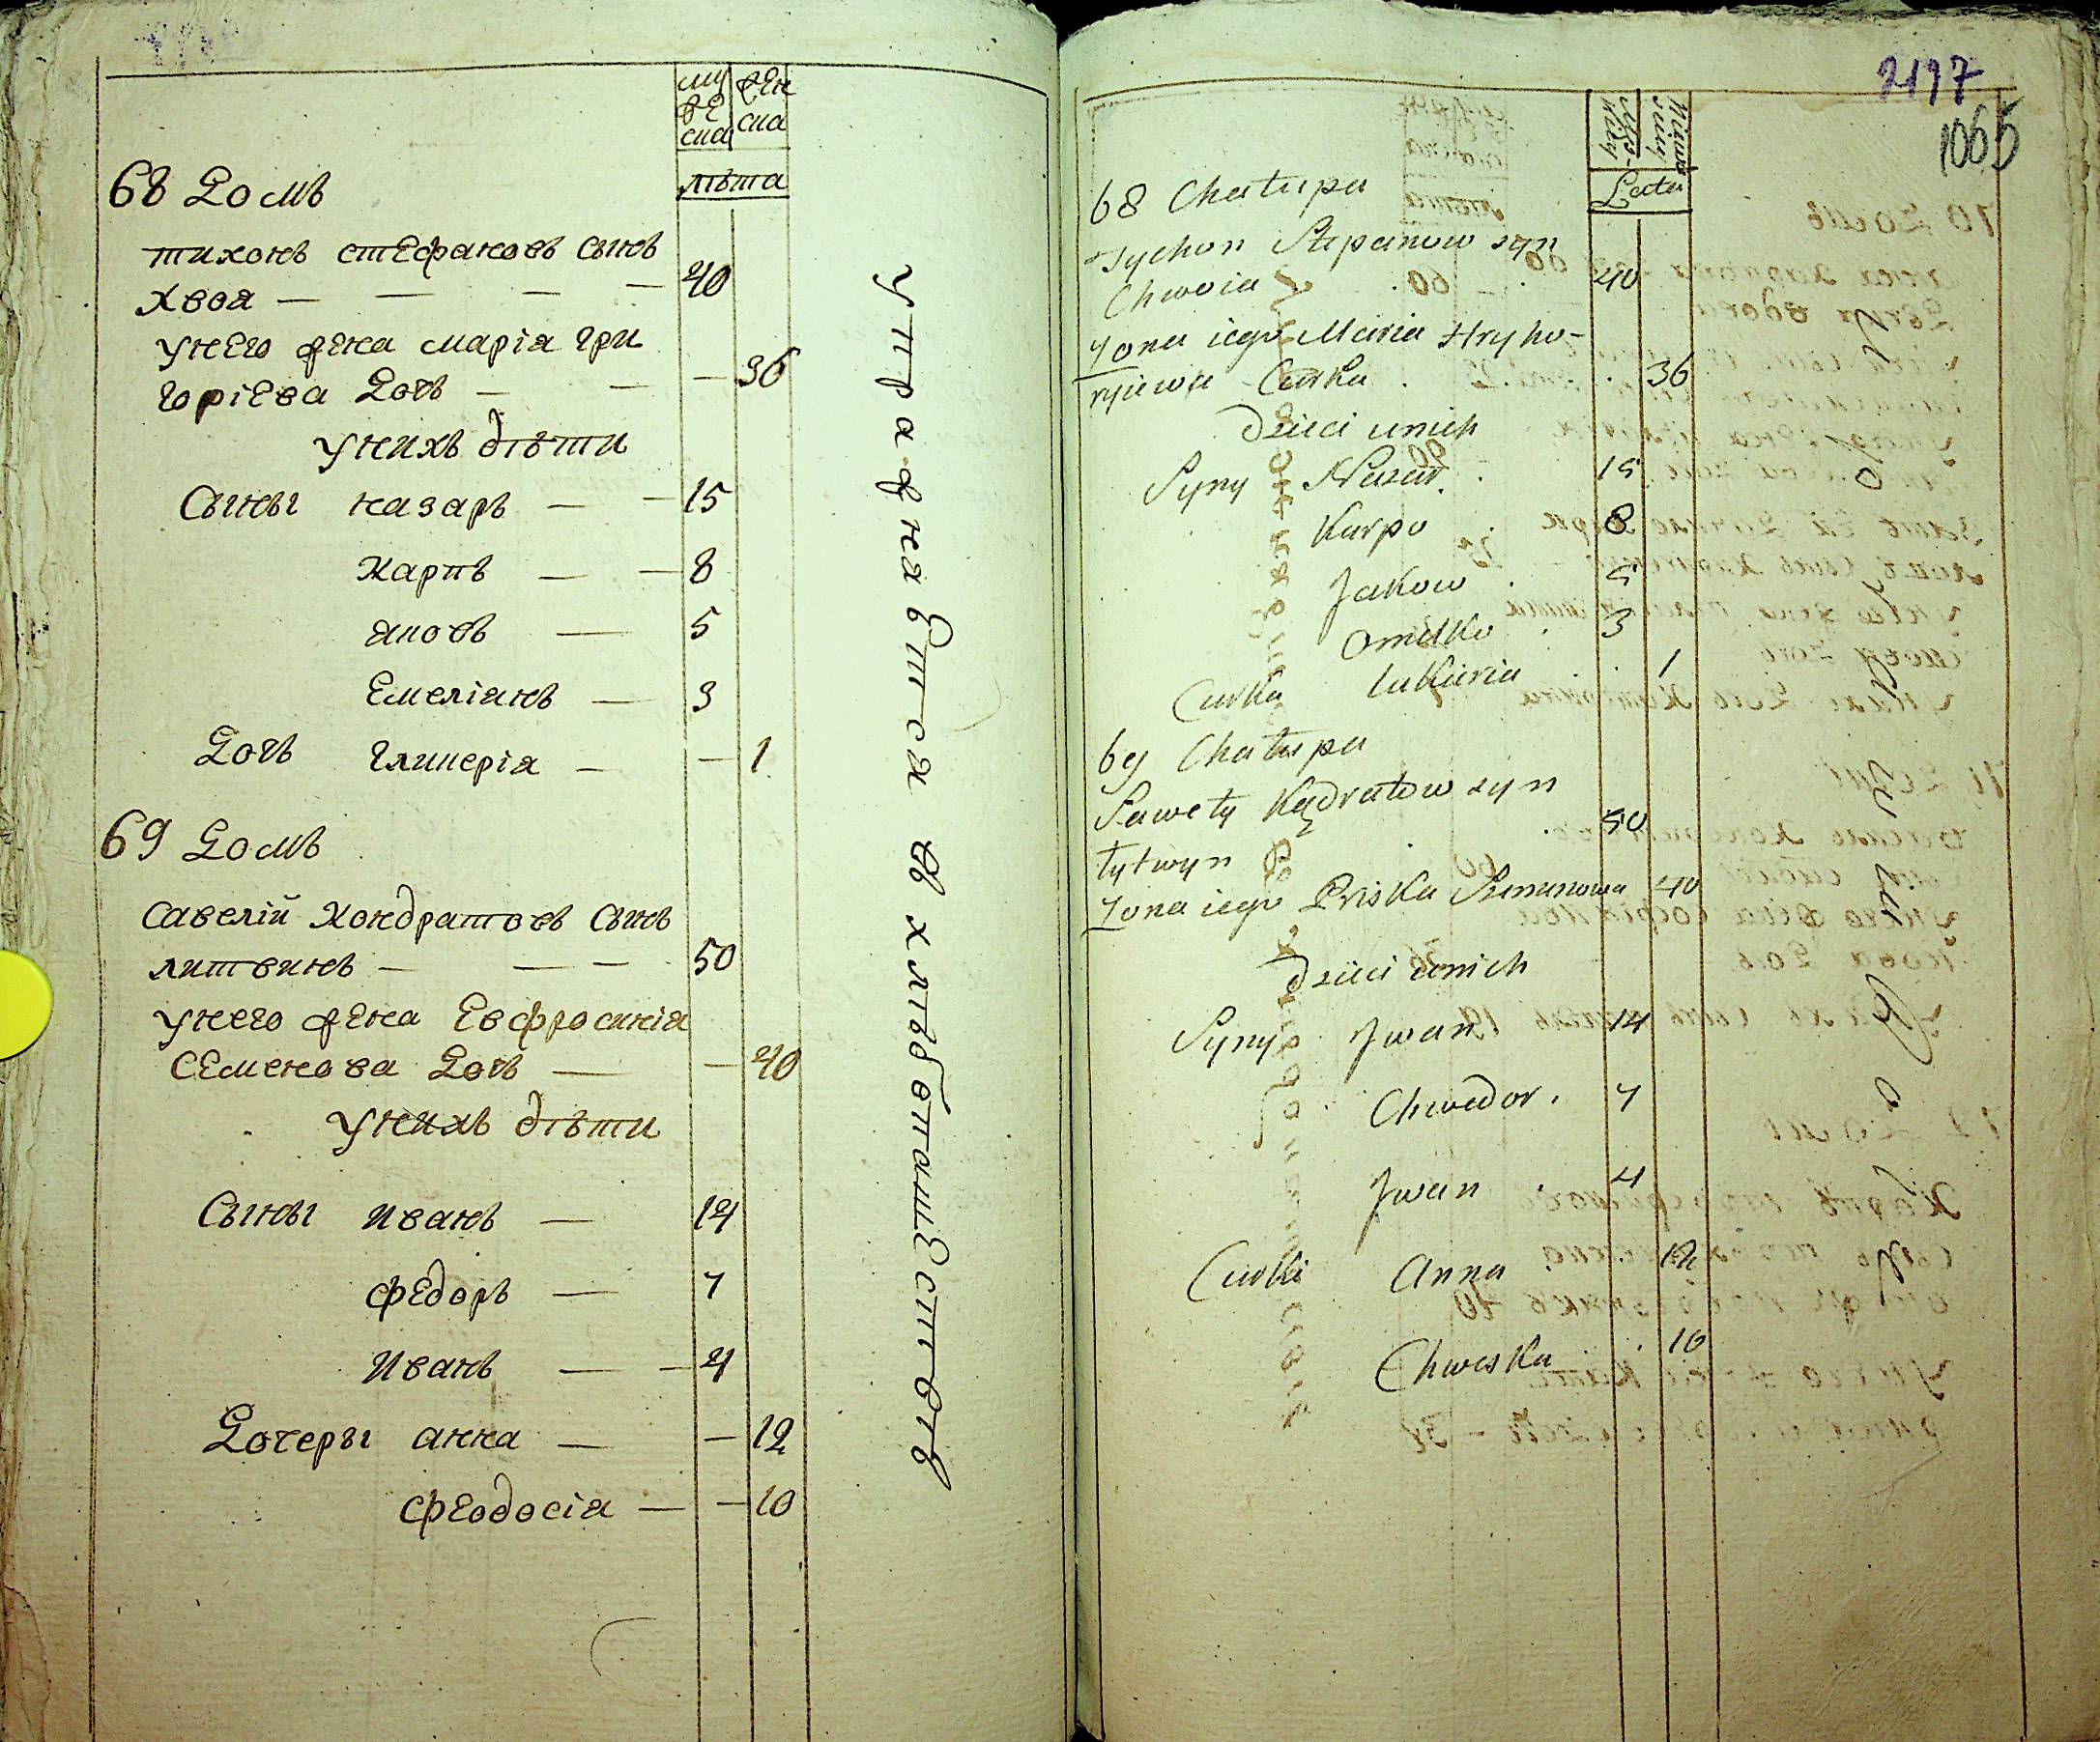 му
же
ска
жен
ска
лѣта
68 Домъ
тихонъ стефановъ сынъ
хвоя — — — — 40
унего жена марія гри
горіева Дочь — — — 36
унихъ дѣти
Сыны назаръ — — 15
карпъ — — 8
яковъ — 5
Емеліанъ — 3
Дочь гликерія — — 1
69 Домъ
савелій кондратовъ сынъ
литвинъ — — — 50
унего жена Евфросинія
семенова Дочь — — 40
унихъ дѣти
Сыны иванъ — 14
федоръ — 7
Иванъ — — 4
Дочеры анна — — 12
феодосія — — 10
упражняется въ хлѣбопашествѣ
2197
1065
Lata
68 Chałupa
Tychon Stepanow syn
Chwoia 40
Żona iego Maria Hryho-
ryiewa Curka . . 36
Dzieci unich
Syny Nazar . 15
Karpo . 8
Jakow . 5
Omelko . 3
Curka Łukiria . 1
69 Chałupa
Sawety Kądratow syn
. 50
Łytwyn
Żona iego Priska Semenowa 40
Dzieci unich
Syny Jwan 14
Chwedor . 7
Jwan . 4
Curki Anna . 12
Chweska . 10